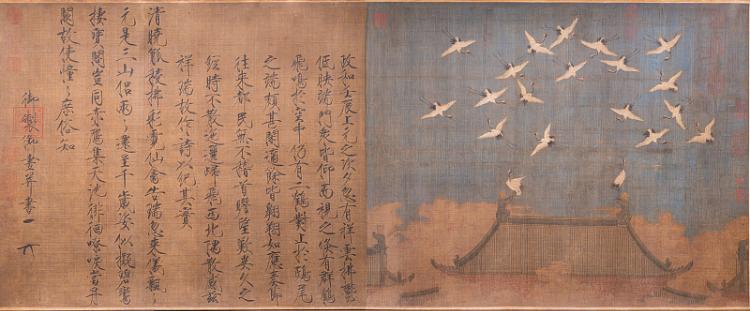 政和壬辰上元之次夕忽有祥雲拂鬱
低映端門衆皆仰而視之倏有群鶴
飛鳴於空中仍有二鶴對止於鴟尾
之端頗甚閒適餘皆翱翔如應奏節
往來都民無不稽首瞻望歎異久之
經時不散迤邐歸飛西北隅散感茲
祥瑞故作詩以紀其實
清曉觚稜拂彩霓仙禽告瑞忽來儀飄〻
元是三山侶兩〻還呈千歲姿似擬碧鸞
棲寶閣豈同赤鴈集天池徘徊嘹唳當丹
闕故使憧〻庶俗知
御製御畫并書